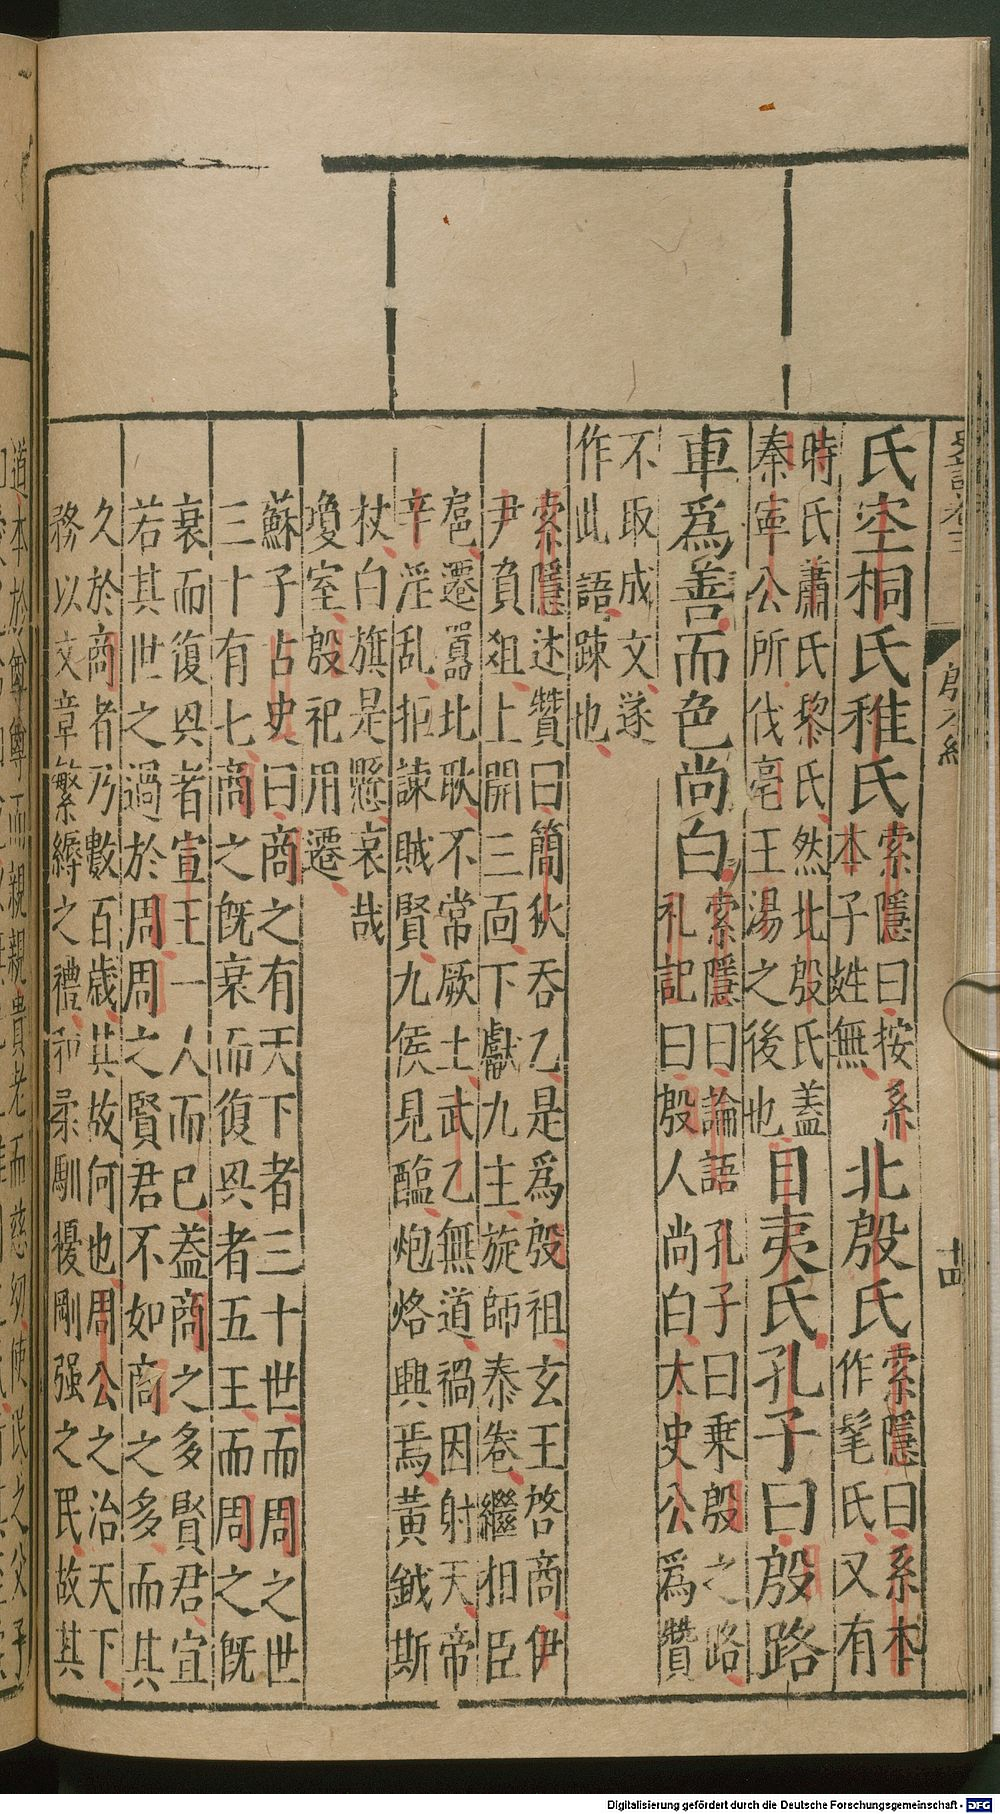 史記卷三
殷本紀
十四
氏空桐氏稚氏
索隱曰按系
本子姓無
北殷氏
索隱曰系本
作髦氏又有
時氏蕭氏黎氏然北殷氏蓋
秦寧公所伐亳王湯之後也
目夷氏孔子曰殷路
車爲善而色尚白
索隱曰論語孔子曰乗殷之路
礼記曰殷人尚白太史公爲贊
不取成文遂
作此語踈也
索隱述贊曰簡狄吞乙是爲殷祖玄王啓商伊
尹負俎上開三面下獻九主旋師泰卷繼相臣
扈遷嚣圮耿不常厥土武乙無道禍因射天帝
辛淫乱拒諫賊賢九侯見醢炮烙興焉黃鉞斯
杖白旗是懸哀哉
瓊室殷祀用遷
蘇子古史曰商之有天下者三十世而周之世
三十有七商之旣衰而復㒷者五王而周之旣
衰而復㒷者宣王一人而已蓋商之多賢君宜
若其世之過於周周之賢君不如商之多而其
久於商者乃數百歲其故何也周公之治天下
務以文章繁縟之禮和柔馴擾剛强之民故其
道本於尊尊而親親貴老而慈幼使民之父子
Digitalisierung gefördert durch die Deutsche Forschungsgemeinschaft - DFG